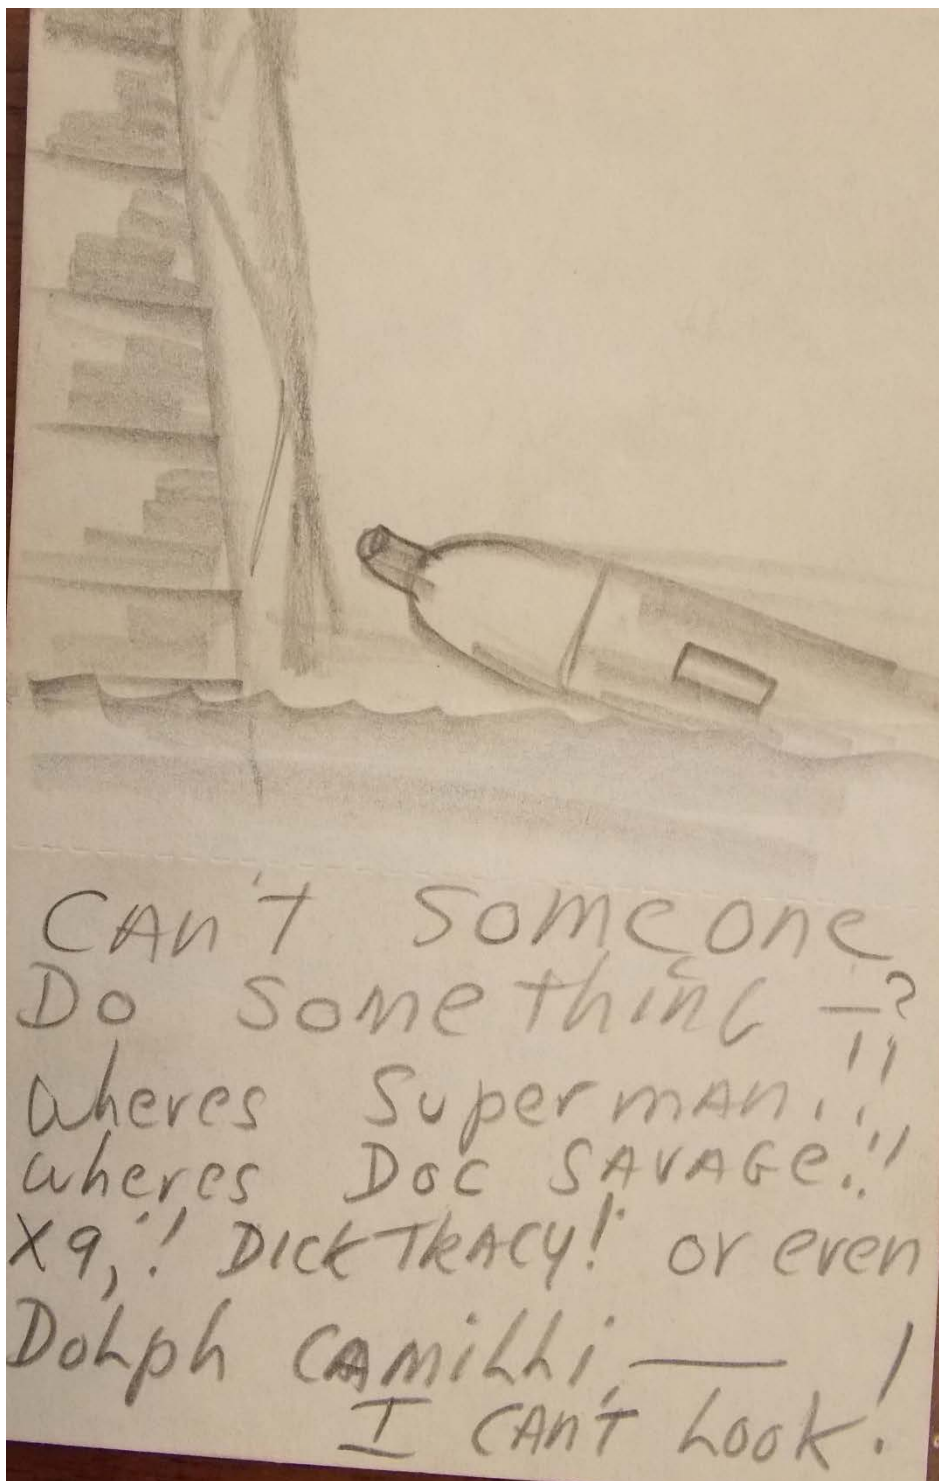 CAn't Someone
Do Something —?
Wheres Superman!!
Wheres Doc SAVAGe!!
X9,! DICK TRACY! or even
DoLph CAmiLLi, — !
I CAn't Look!